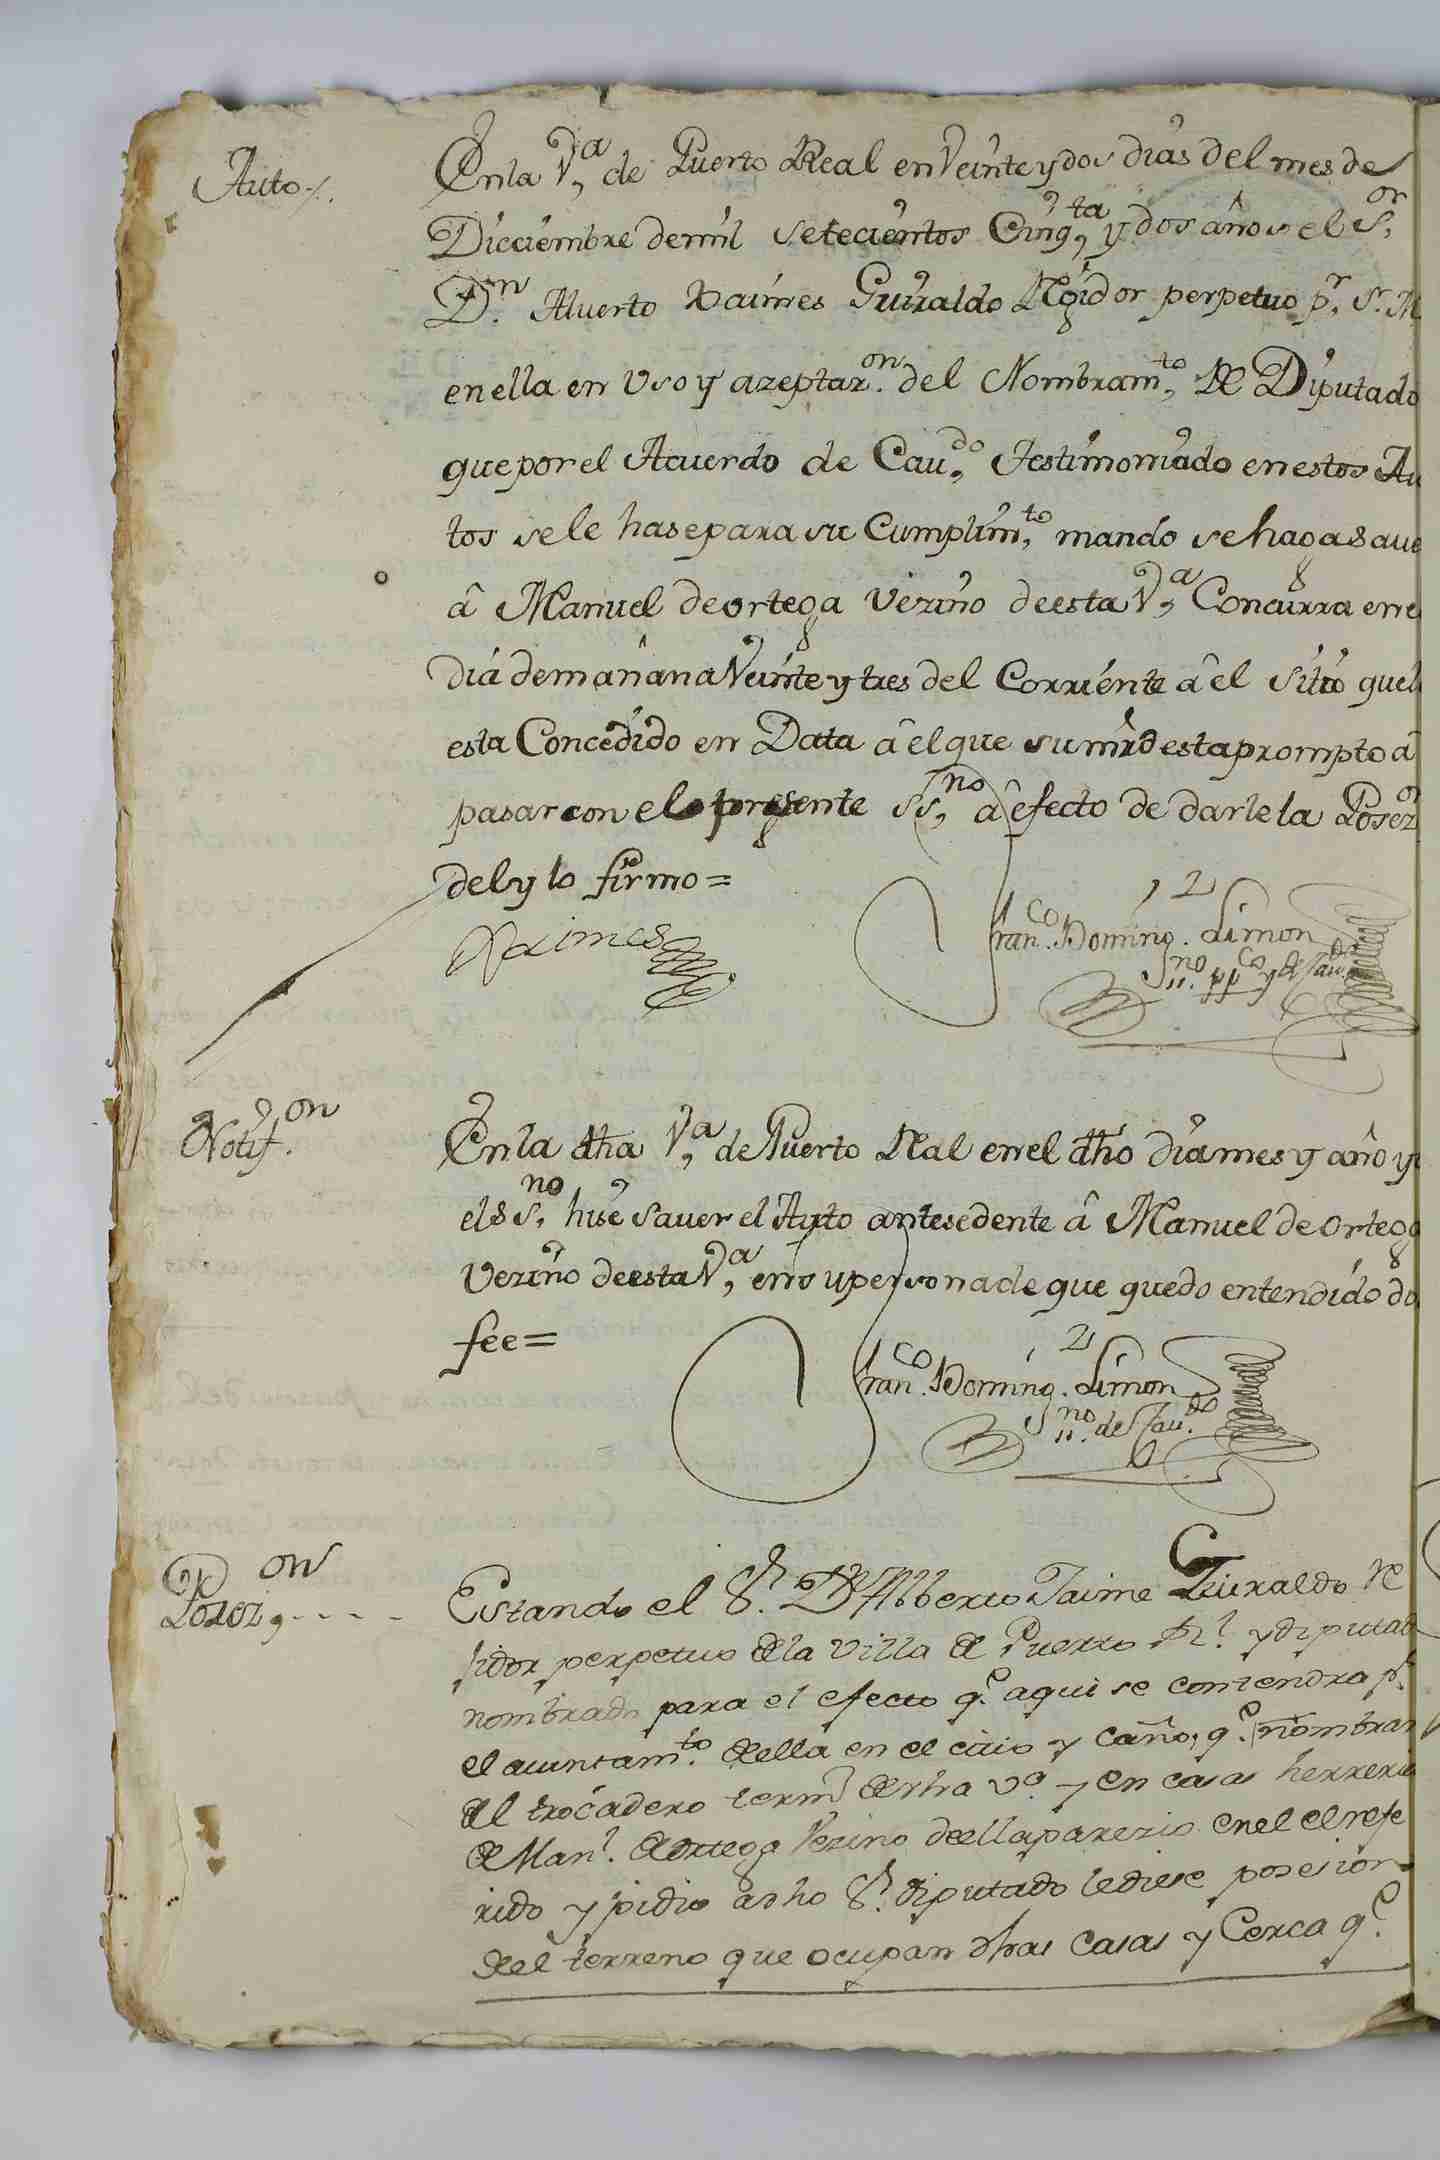 Auto
En la V.ª de Puerto Real en Veinte y dos dias del mes de
Dicciembre de mil setecientos Cinq.ta y dos años el S.or
D.n Alverto Xaimes Guiraldo Rẽgidor perpetuo p.r S. M.
en ella en Uso y azeptaz.on del Nombram.to de Diputado
que por el Acuerdo de Cav.do Testimoniado en estos Au
tos se le hase para su Cumplim.to mandó se haga save
â Manuel de ortega Vezino de esta V.ª Concurra en e
dia de mañana Veinte y tres del Corriente â el sitio que l
esta Concedido en Data â el que su mrd esta prompto â
pasar con el presente ss.no â efecto de darle la Posez.on
del y lo firmo =
Xaimes
Fran.co Doming. Limon
S.no pp.co y de Cav.do
Notif.on
En la dha V.ª de Puerto Real en el dho dia mes y año y
el ss.no hise saver el Auto antesedente â Manuel de ortega
Vezino de esta V.ª en su persona de que quedo entendido do
fee =
Fran.co Doming. Limon
S.no de Cav.do
Posez.on
Estando el S.r D.n Alberto Jaime Guiraldo Re
jidor perpetuo de la Villa de Puerto R.l y diputad
nombrado para el efecto q.e aqui se contendra p.r
el aiuntam.to de ella en el citio y caño, q.e nombran
del trocadero term.o de dha V.ª y en casas herreria
de Man.l de ortega Vezino de ella parezio en el el refe
rido y pidio a dho S.r diputado le diese posesion
de el terreno que ocupan dhas Casas y Cerca q.e